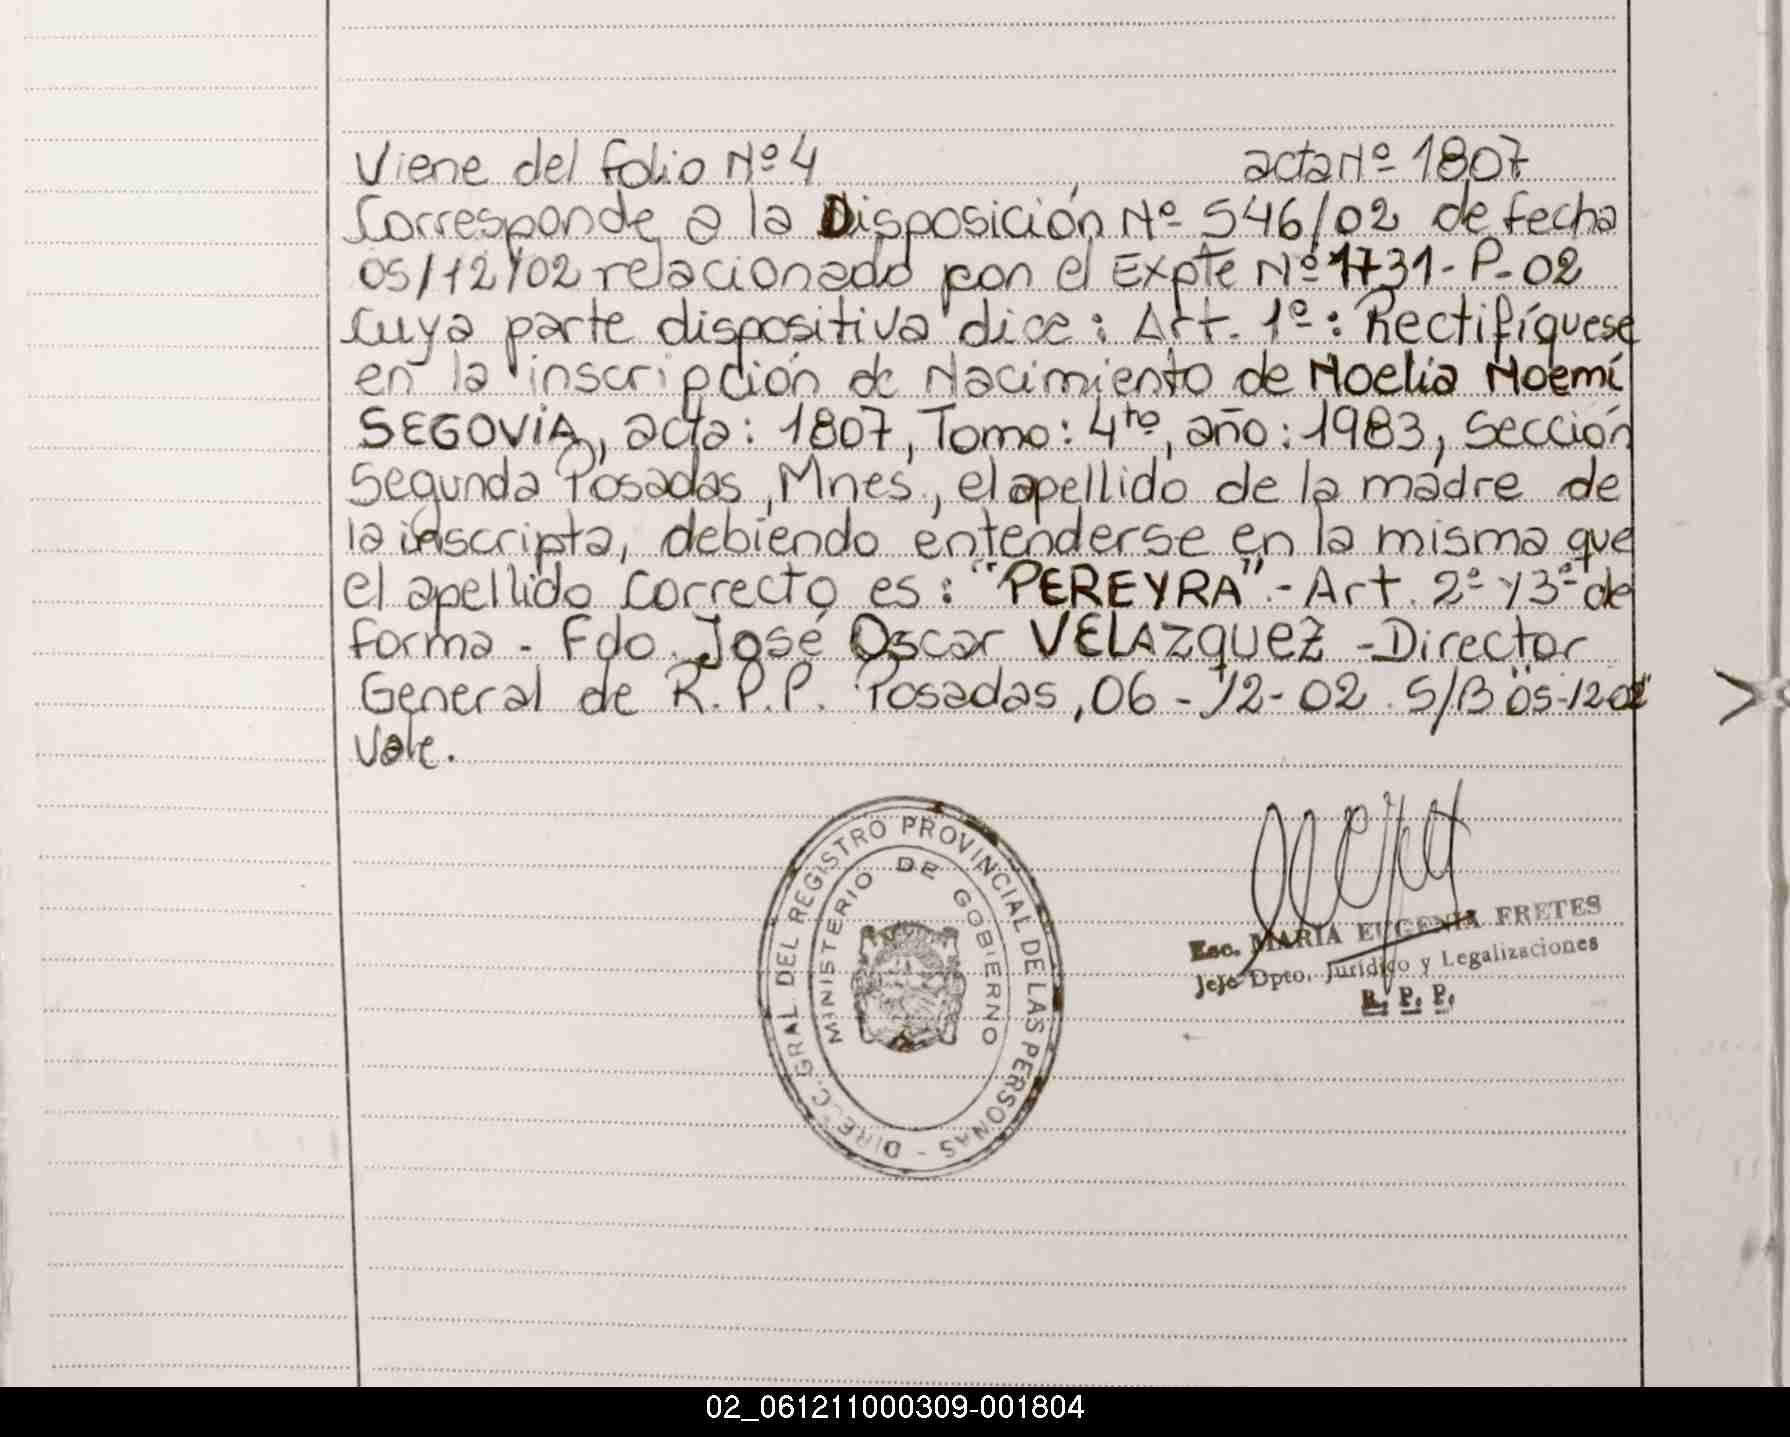 Viene del folio Nº 4 acta Nº 1807
Corresponde a la Disposición Nº 546/02 de fecha
05/12/02 relacionado con el Expte Nº 1731-P-02
cuya parte dispositiva dice: Art. 1º: Rectifíquese
en la inscripción de Nacimiento de Noelia Noemí
SEGOVIA, acta: 1807, Tomo: 4to, año: 1983, Sección
Segunda Posadas, Mnes., el apellido de la madre de
la inscripta, debiendo entenderse en la misma que
el apellido correcto es: "PEREYRA".- Art. 2º y 3º de
forma - Fdo. José Oscar VELAZquEZ - Director
General de R.P.P. Posadas, 06-12-02. S/B "05-12-02"
Vale.
DIRECC. GRAL. DEL REGISTRO PROVINCIAL DE LAS PERSONAS -
MINISTERIO DE GOBIERNO
Esc. MARIA EUGENIA FRETES
Jefe Dpto. Jurídico y Legalizaciones
R. P. P.
02_061211000309-001804